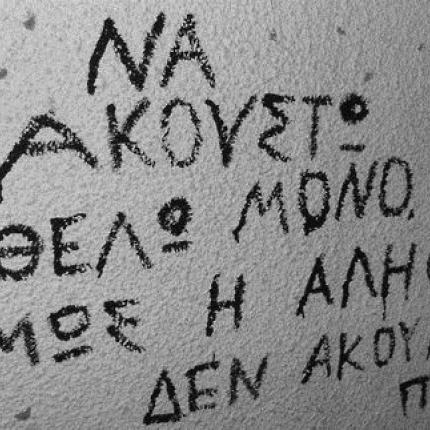 ΝΑ
ΑΚΟΥΣΤΩ
ΘΕΛΩ ΜΟΝΟ.
ΜΩΣ Η ΑΛΗ
ΔΕΝ ΑΚΟΥ